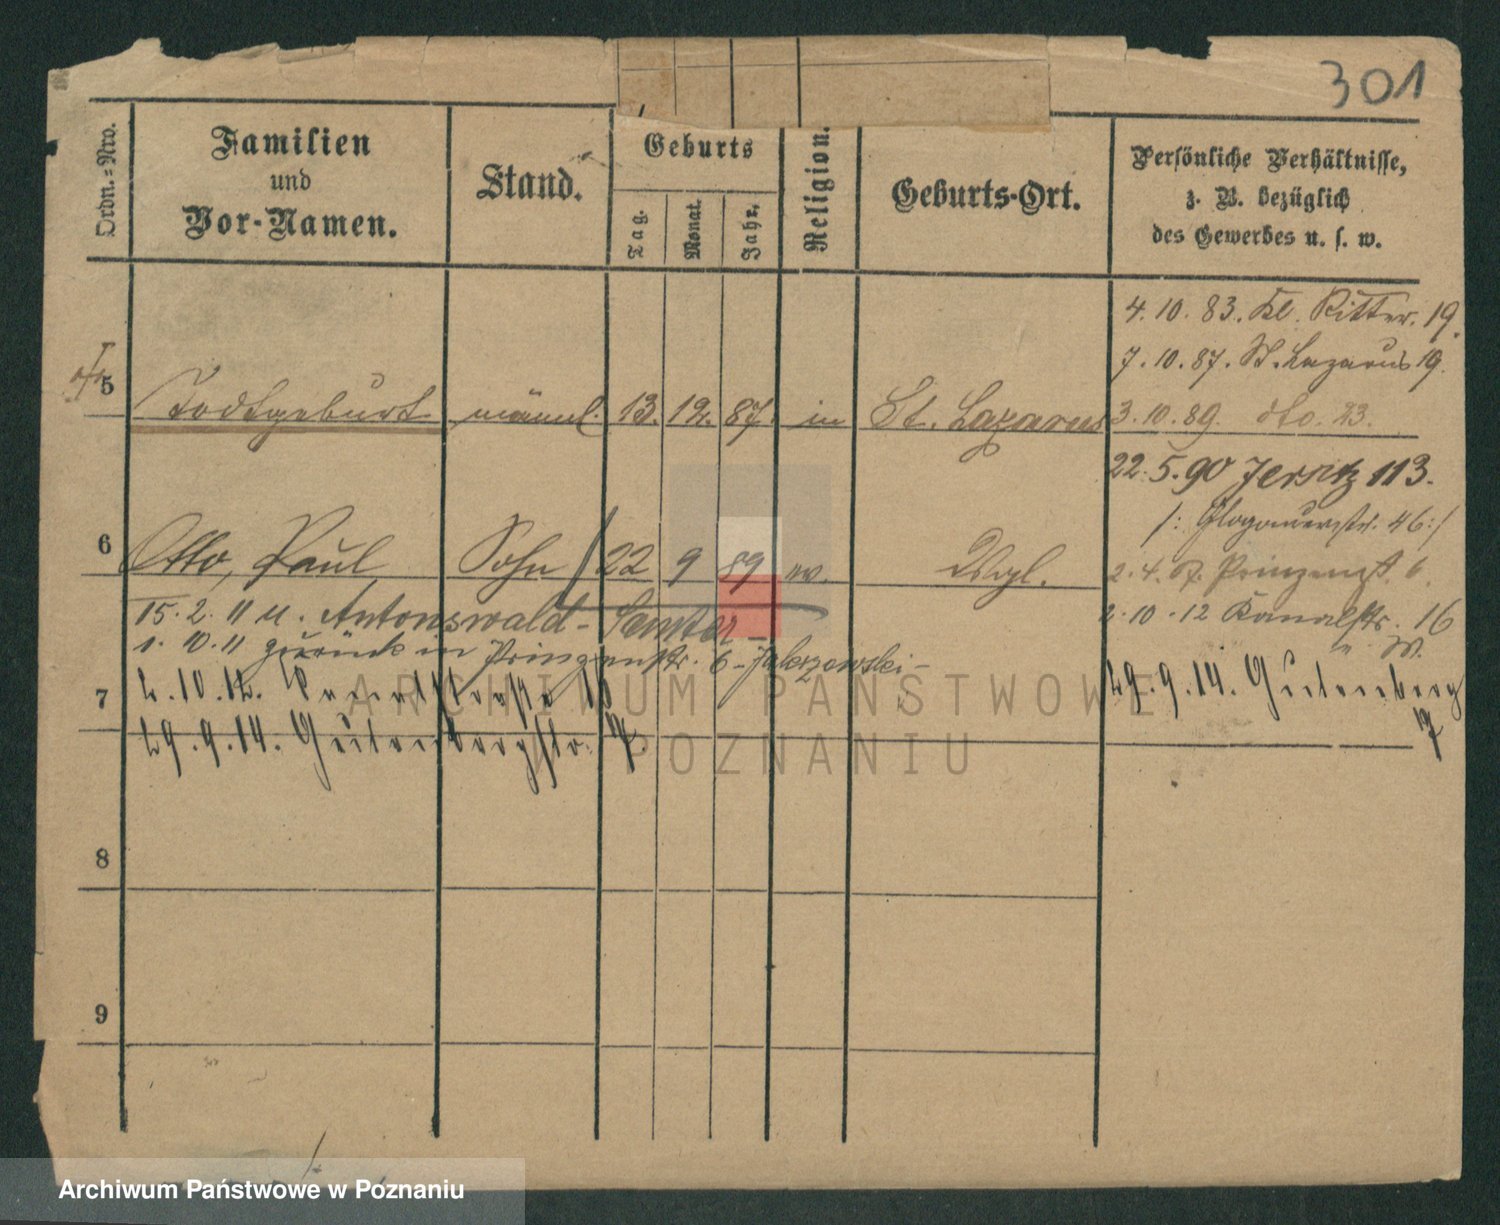 301
Ordn.-Nro.
Familien
und
Vor-Namen.
Stand.
Geburts
Tag.
Monat.
Jahr.
Religion.
Geburts-Ort.
Persönliche Verhältnisse,
z. B. bezüglich
des Gewerbes u. s. w.
4. 10. 83. Kl. Ritter. 19.
7. 10. 87. St. Lazarus 19.
5 Todtgeburt männl. 13. 12. 87. in St. Lazarus
3. 10. 89. dto. 23.
22. 5. 90 Jersitz 113.
/: Glogauerstr. 46 :/
6 Otto, Paul Sohn 22 9 89 ev.
2. 4. Prinzenst. 6.
15. 2. 11 u. Antonswald - Samter -
2. 10. 12 Kanalstr. 16
1. 10. 11 zurück in Prinzenstr. 6 -
7 2. 10. 12. 16
29. 9. 14. Gutenberg
7
29. 9. 14. Gutenbergstr. 7
8
9
ARCHIWUM PAŃSTWOWE
W POZNANIU
Archiwum Państwowe w Poznaniu